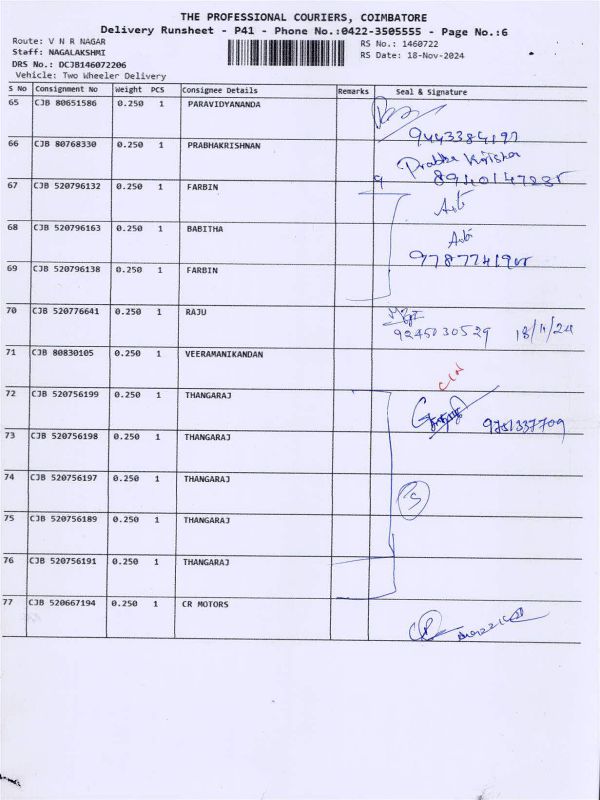 THE PROFESSIONAL COURIERS, COIMBATORE
Delivery Runsheet - P41 - Phone No.:0422-3505555 - Page No.:6
Route: V N R NAGAR
RS No.: 1460722
Staff: NAGALAKSHMI
RS Date: 18-Nov-2024
DRS No.: DCJB146072206
Vehicle: Two Wheeler Delivery
S No Consignment No Weight PCS Consignee Details Remarks Seal & Signature
65 CJB 80651586 0.250 1 PARAVIDYANANDA
66 CJB 80768330 0.250 1 PRABHAKRISHNAN
Prabha Krisha
67 CJB 520796132 0.250 1 FARBIN
68 CJB 520796163 0.250 1 BABITHA
69 CJB 520796138 0.250 1 FARBIN
70 CJB 520776641 0.250 1 RAJU
9245030529 18/11/24
71 CJB 80830105 0.250 1 VEERAMANIKANDAN
72 CJB 520756199 0.250 1 THANGARAJ
9751337709
73 CJB 520756198 0.250 1 THANGARAJ
74 CJB 520756197 0.250 1 THANGARAJ
75 CJB 520756189 0.250 1 THANGARAJ
76 CJB 520756191 0.250 1 THANGARAJ
77 CJB 520667194 0.250 1 CR MOTORS